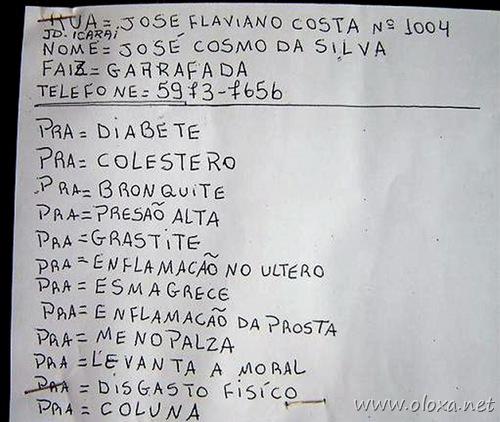 RUA = JOSE FLAVIANO COSTA Nº 1004
JD. ICARAI
NOME = JOSÉ COSMO DA SILVA
FAIZ = GARRAFADA
TELEFONE = 5973-7656
PRA = DIABETE
PRA = COLESTERO
PRA = BRONQUITE
PRA = PRESÃO ALTA
PRA = GRASTITE
PRA = ENFLAMACÃO NO ULTERO
PRA = ESMAGRECE
PRA = ENFLAMAÇÃO DA PROSTA
PRA = MENOPALZA
PRA = LEVANTA A MORAL
PRA = DISGASTO FISÍCO
PRA = COLUNA
www.oloxa.net